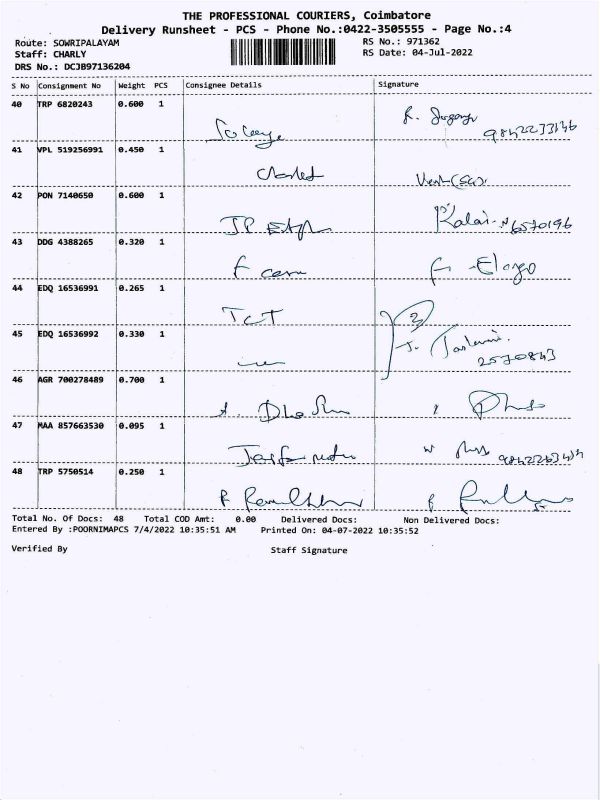 THE PROFESSIONAL COURIERS, Coimbatore
Delivery Runsheet - PCS - Phone No.:0422-3505555 - Page No.:4
Route: SOWRIPALAYAM
Staff: CHARLY
DRS No.: DCJB97136204
RS No.: 971362
RS Date: 04-Jul-2022
S No Consignment No Weight PCS Consignee Details Signature
40 TRP 6820243 0.600 1
41 VPL 519256991 0.450 1
42 PON 7140650 0.600 1
Kalai 6570196
43 DDG 4388265 0.320 1
44 EDQ 16536991 0.265 1
TCT
45 EDQ 16536992 0.330 1
2570843
46 AGR 700278489 0.700 1
47 MAA 857663530 0.095 1
48 TRP 5750514 0.250 1
Total No. Of Docs: 48 Total COD Amt: 0.00 Delivered Docs: Non Delivered Docs:
Entered By :POORNIMAPCS 7/4/2022 10:35:51 AM Printed On: 04-07-2022 10:35:52
Verified By Staff Signature